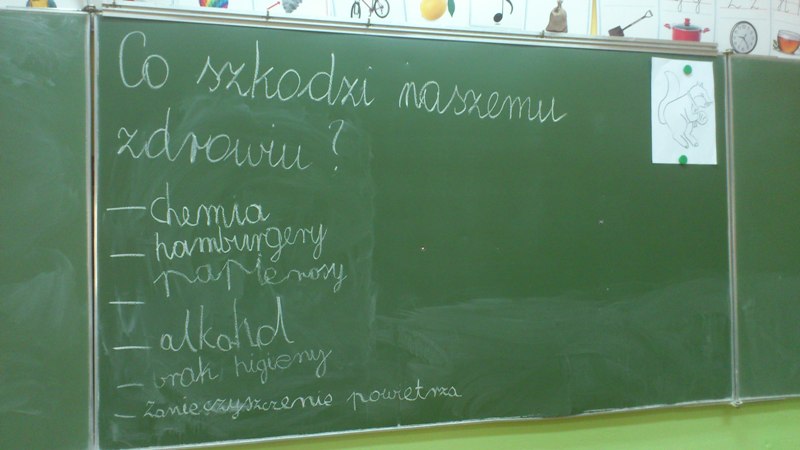 Co szkodzi naszemu
zdrowiu?
— chemia
— hamburgery
— papierosy
— alkohol
— brak higieny
— zanieczyszczenie powietrza